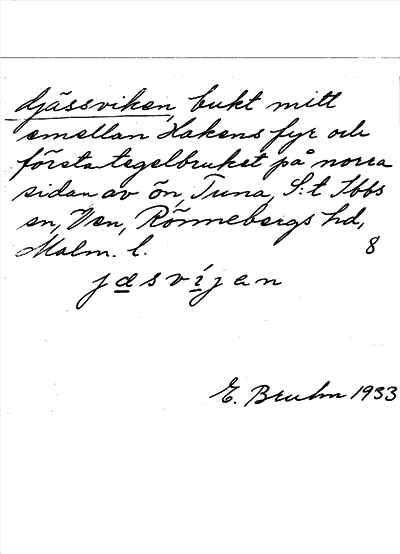 Gjässviken, bukt mitt
emellan Hakens fyr och
första tegelbruket på norra
sidan av ön, Tuna, S:t Ibbs
sn, Ven, Rönnebergs hd,
Malm. l. 8
jæsvíjan
E. Bruhn 1933